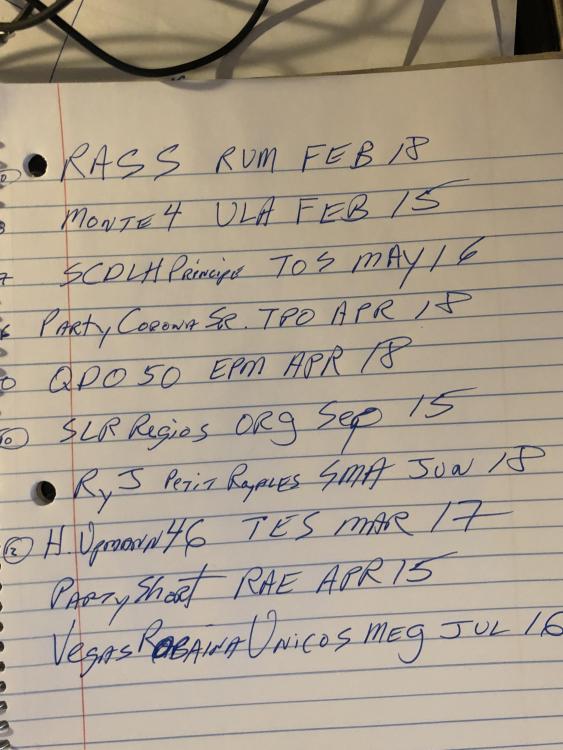 RASS RUM FEB 18
MONTE 4 ULA FEB 15
SCDLH Principe TOS MAY 16
PARTY CORONA SR. TPO APR 18
QDO 50 EPM APR 18
10 SLR Regios ORG Sep 15
RyJ PETIT ROYALES SMA JUN 18
12 H. Upmann 46 TES MAR 17
PARTY Short RAE APR 15
VEGAS ROBAINA UNICOS MEG JUL 16